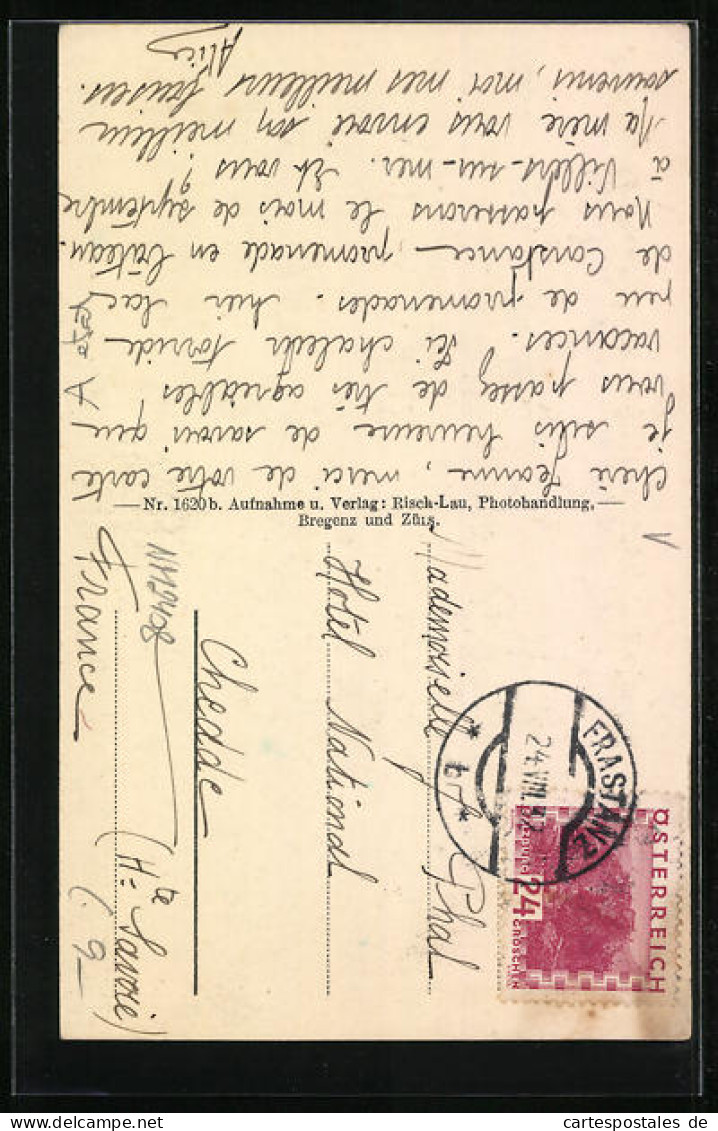 Chère Jeanne, merci de votre carte
je suis heureuse de savoir que
vous passez de très agréables
vacances. Ici chaleur torride
peu de promenades. hier lac
de Constance - promenade en bâteau.
Nous passerons le mois de septembre
à Villers-sur-mer. Et vous?
Ma mère vous envoie son meilleur
souvenir, moi mes meilleurs baisers.
Alice
Nr. 1620b. Aufnahme u. Verlag: Risch-Lau, Photohandlung,
Bregenz und Zürs.
FRASTANZ
24.VIII.32
* b *
ÖSTERREICH
24
GROSCHEN
Mademoiselle J. Phal
Hôtel National
Chedde
(Hte Savoie)
France
N112408
cartespostales de